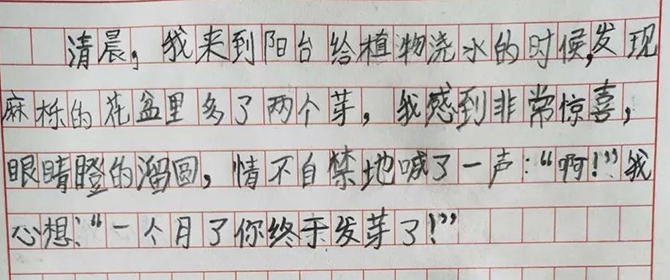 清晨，我来到阳台给植物浇水的时候，发现
麻栎的花盆里多了两个芽，我感到非常惊喜，
眼睛瞪的溜圆，情不自禁地喊了一声：“啊！”我
心想：“一个月了你终于发芽了！”